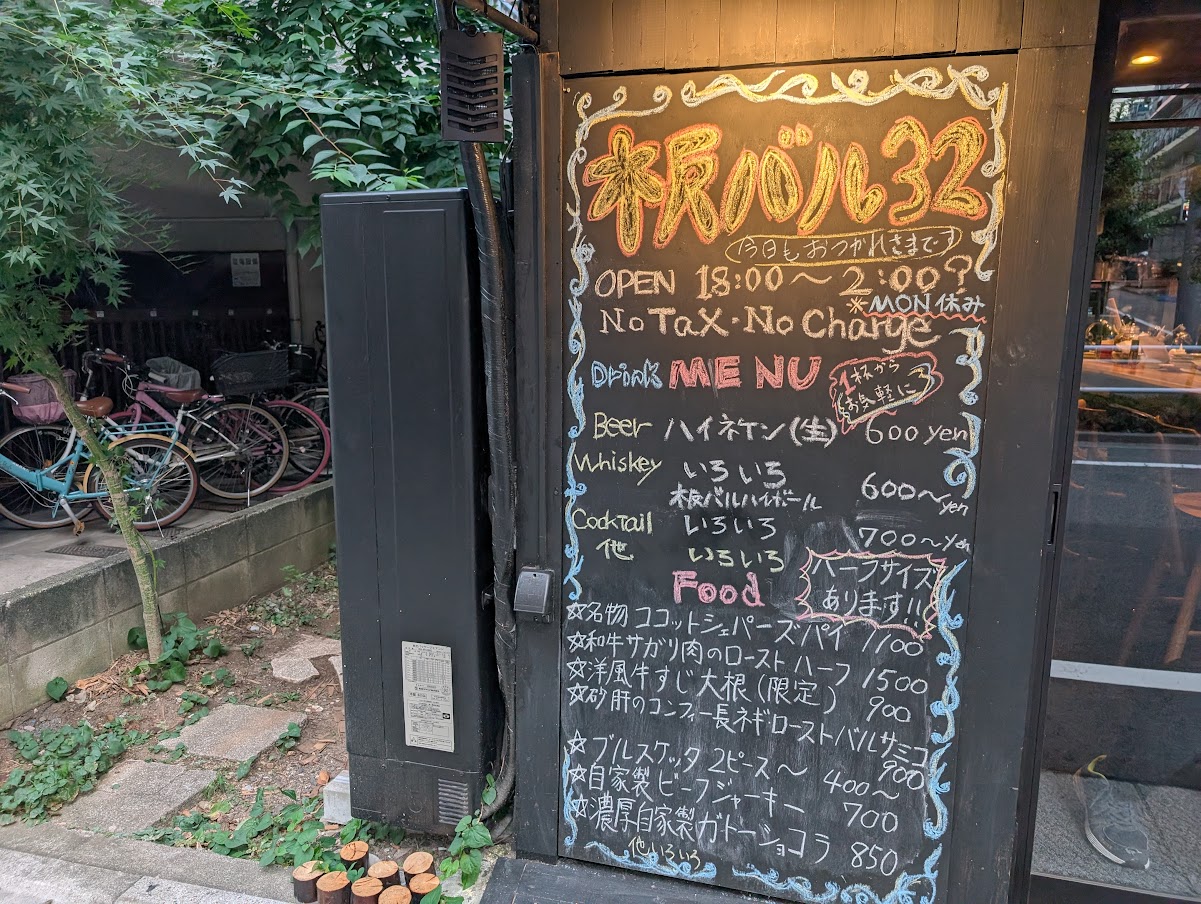 板バル32
今日もおつかれさまです
OPEN 18:00〜2:00?
※MON休み
No Tax・No Charge
Drink MENU
1杯から
お気軽に
Beer ハイネケン(生) 600 yen
Whiskey いろいろ
板バルハイボール 600〜yen
Cocktail いろいろ 700〜yen
他 いろいろ
Food
ハーフサイズ
あります!!
☆名物 ココットシェパーズパイ 1100
☆和牛サガリ肉のロースト ハーフ 1500
☆洋風牛すじ大根(限定) 900
☆砂肝のコンフィー長ネギローストバルサミコ
900
☆ブルスケッタ 2ピース〜 400〜
☆自家製ビーフジャーキー 700
☆濃厚自家製ガトーショコラ 850
他いろいろ